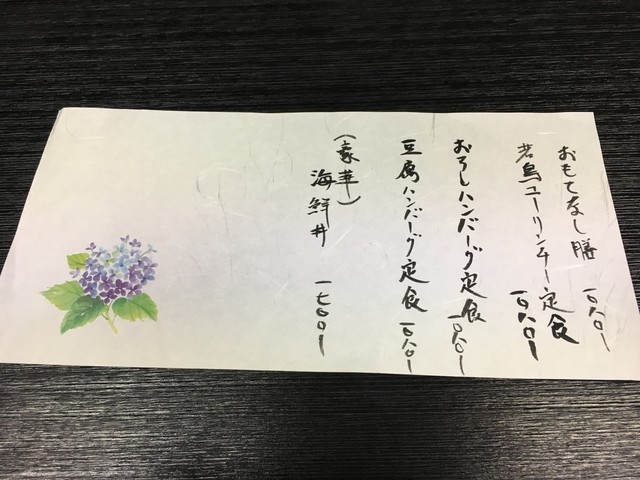 おもてなし膳 一〇八〇ー
若鳥ユーリンチー定食 一〇八〇ー
おろしハンバーグ定食 一〇八〇ー
豆腐ハンバーグ定食 一〇八〇ー
(豪華)海鮮丼 一七〇〇ー